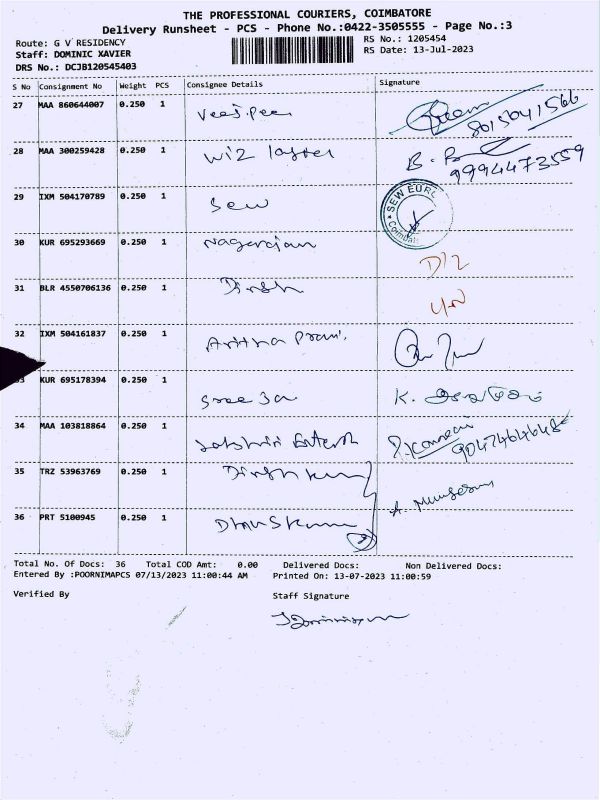 THE PROFESSIONAL COURIERS, COIMBATORE
Delivery Runsheet - PCS - Phone No.:0422-3505555 - Page No.:3
Route: G V RESIDENCY
RS No.: 1205454
Staff: DOMINIC XAVIER
RS Date: 13-Jul-2023
DRS No.: DCJB120545403
S No Consignment No Weight PCS Consignee Details Signature
27 MAA 860644007 0.250 1 Veejpee
28 MAA 300259428 0.250 1 Wiz 9994473559
29 IXM 504170789 0.250 1 Sew SEW EURO
30 KUR 695293669 0.250 1 Nagarajan
31 BLR 4550706136 0.250 1 Dinesh
32 IXM 504161837 0.250 1
33 KUR 695178394 0.250 1 Sree K.
34 MAA 103818864 0.250 1
35 TRZ 53963769 0.250 1 Dinesh kumar
36 PRT 5100945 0.250 1
Total No. Of Docs: 36 Total COD Amt: 0.00 Delivered Docs: Non Delivered Docs:
Entered By :POORNIMAPCS 07/13/2023 11:00:44 AM Printed On: 13-07-2023 11:00:59
Verified By Staff Signature